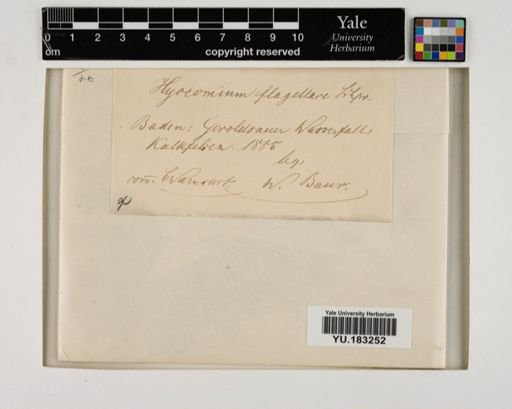 0 1 2 3 4 5 6 7 8 9 10
cm copyright reserved
Yale
University
Herbarium
Hyocomium flagellare
Baden: Geroldsauer Wasserfall,
Kalkfelsen. 1885
lg.
com. W. Baur.
Yale University Herbarium
YU.183252